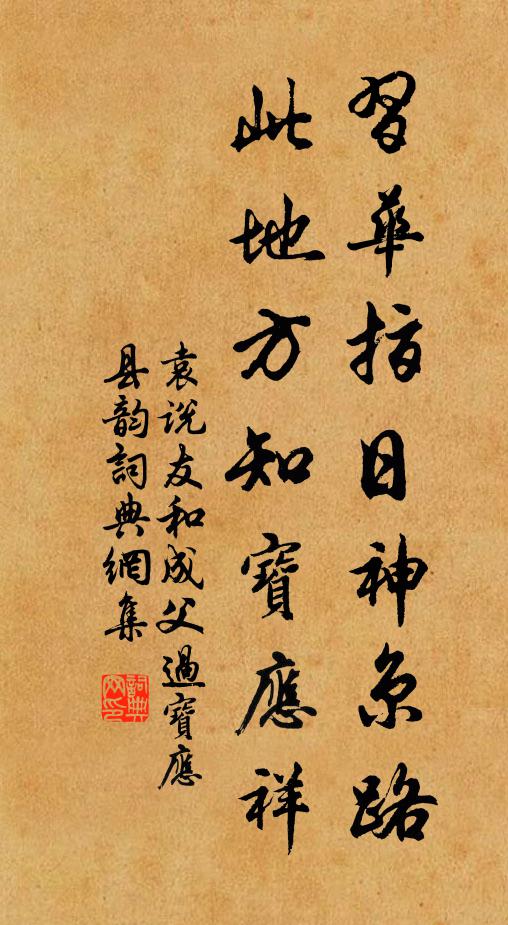 翠華指日神京路
此地方知寶應祥
袁説友和成父過寶應
县韵詞典網集
詞典网印